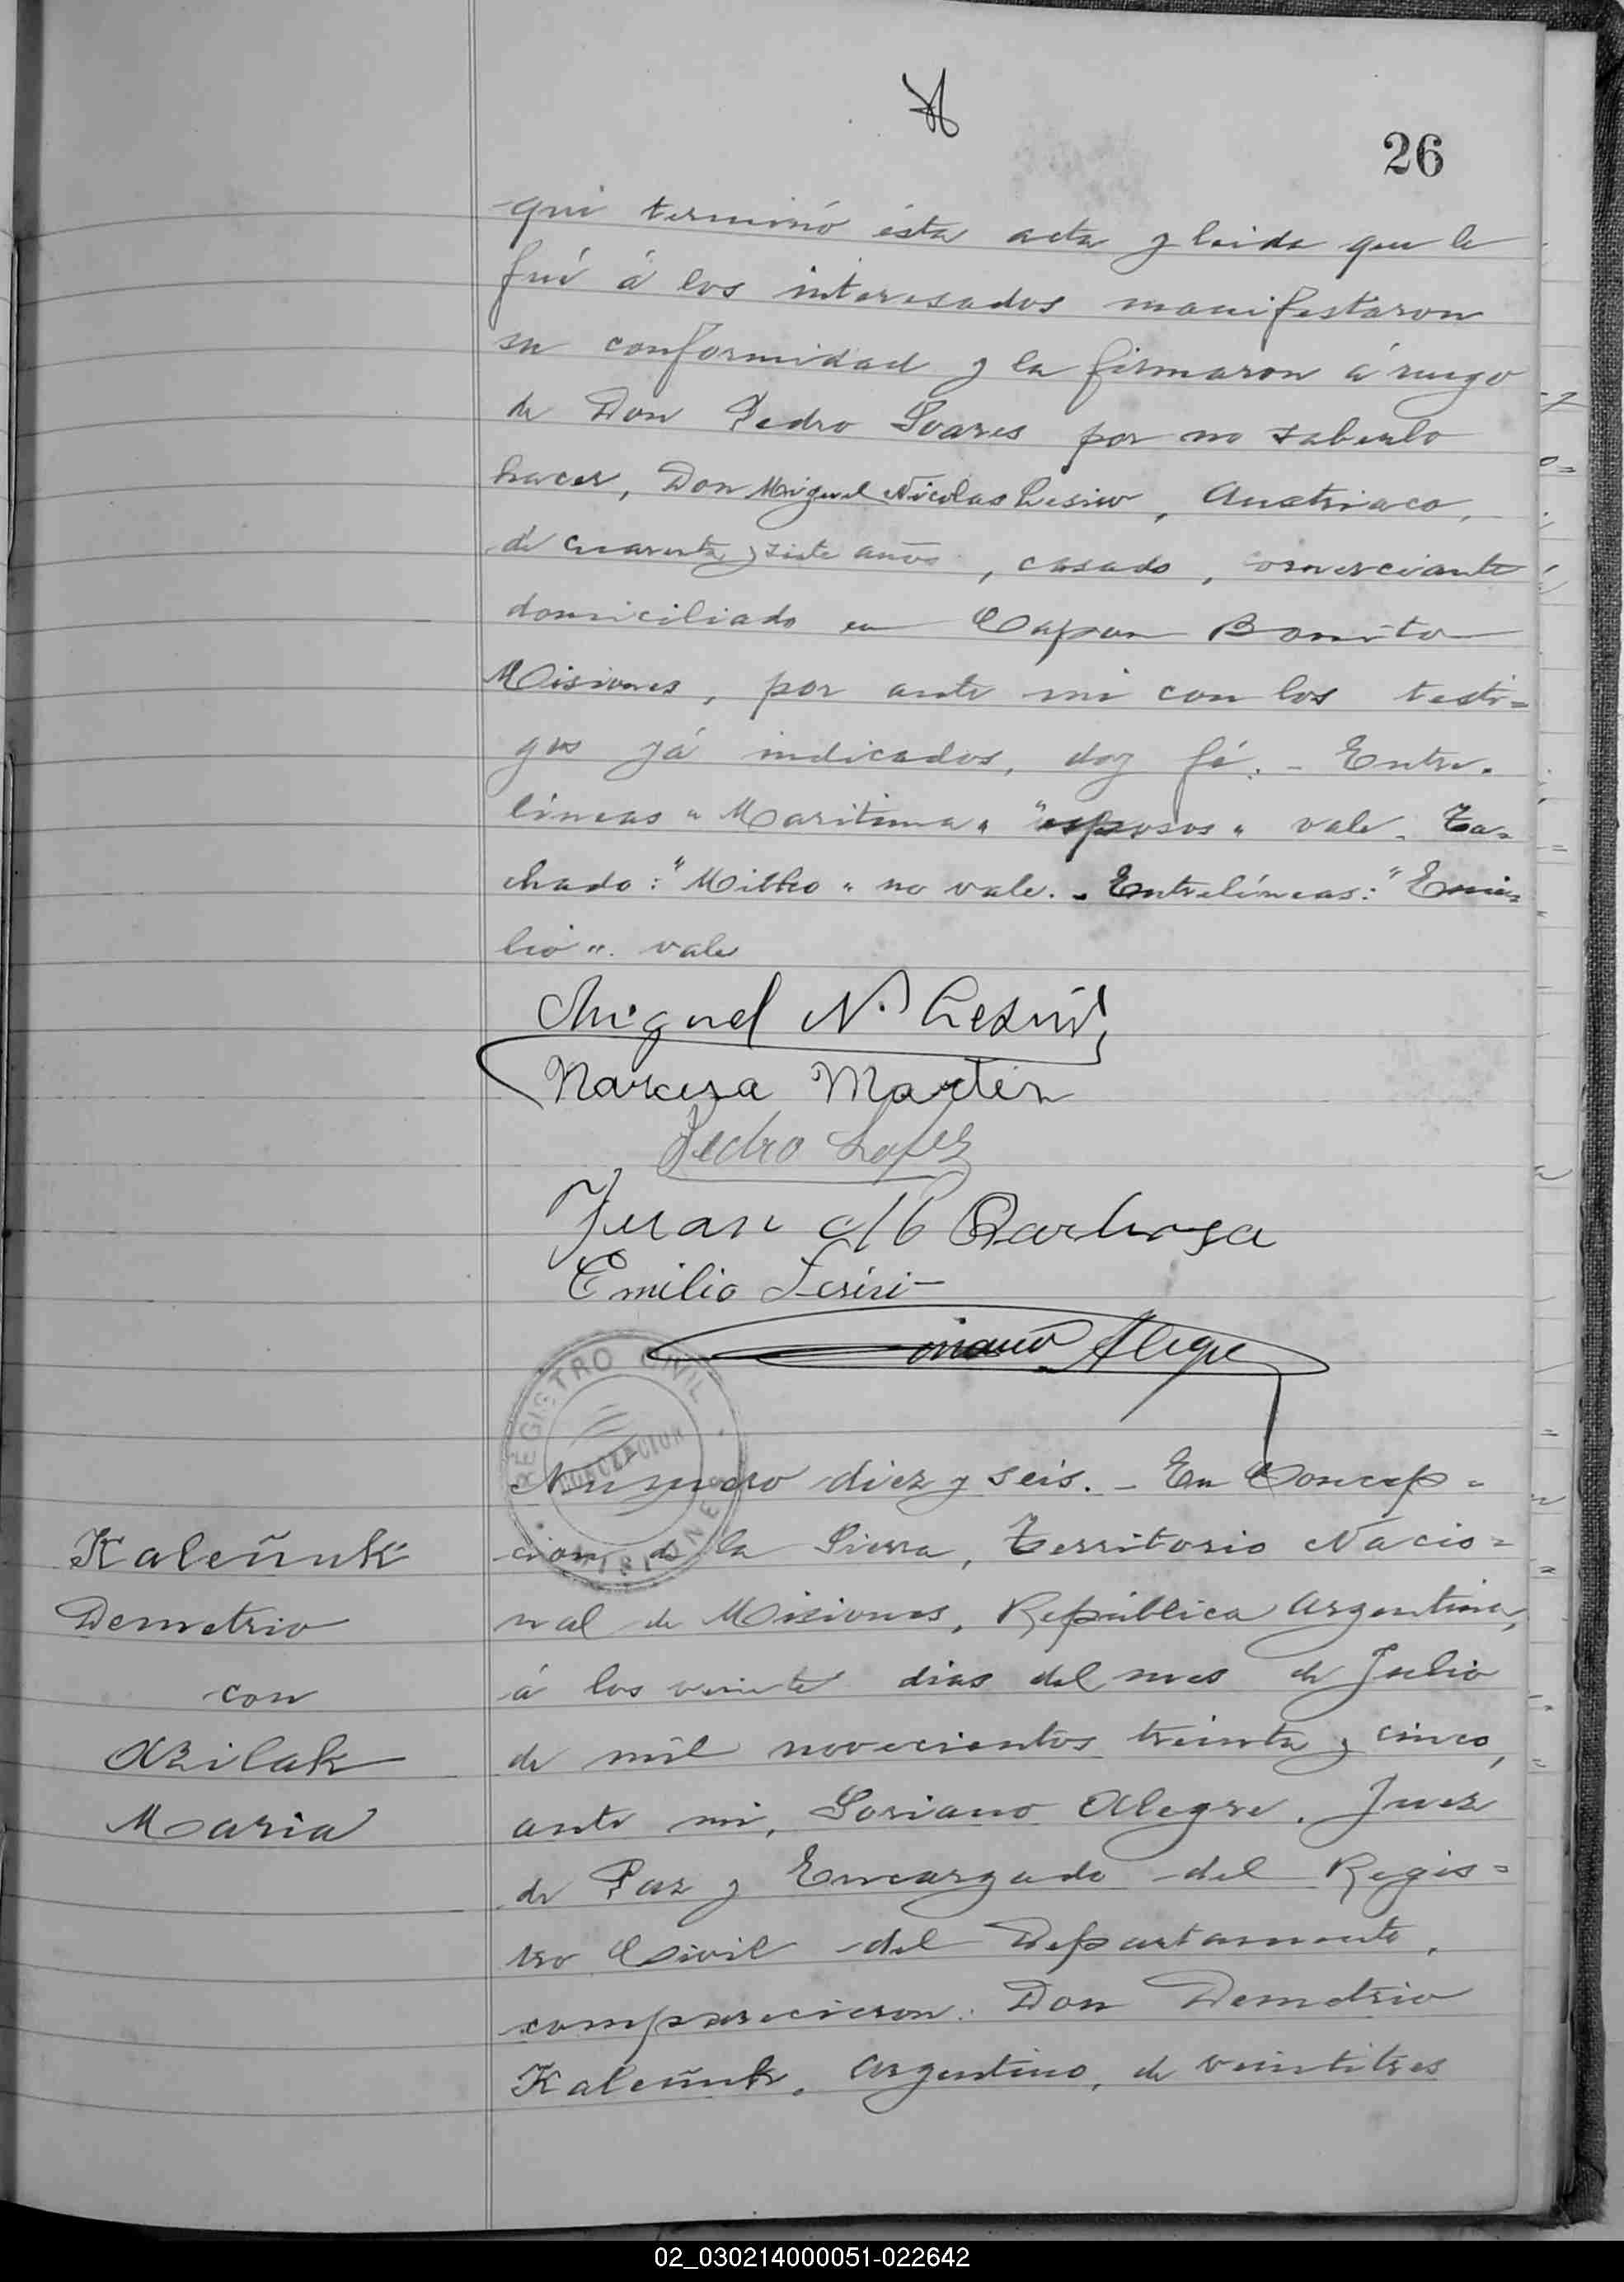 26
qui terminó ésta acta y leida que le
fué á los interesados manifestaron
su conformidad y la firmaron á ruego
de Don Pedro Soares por no saberlo
hacer, Don Miguel Nicolas Lesiw, Austriaco,
de cuarenta y siete años, casado, comerciante
domiciliado en Capon Bonito
Misiones, por ante mi con los testi=
gos yá indicados, doy fé. - Entre.
lineas " Maritima " "esposos" vale. Ta=
chado: " Milho " no vale. - Entrelíneas: " Emi=
lio ". vale
Miguel N. Lesiw
Narcisa Martin
Pedro Lopez
Juan Barbosa
Emilio
Soriano Alegre
REGISTRO CIVIL
CONCEPCION
MISIONES
Numero diez y seis. - En Concep=
cion de la Sierra, Territorio Nacio=
nal de Misiones, República Argentina,
á los veinte dias del mes de Julio
de mil novecientos treinta y cinco,
ante mi, Soriano Alegre, Juez
de Paz y Encargado del Regis=
tro Civil del Departamento,
comparecieron: Don Demetrio
Kaleñuk, Argentino, de veintitres
Kaleñuk
Demetrio
con
Azilak
Maria
02_030214000051-022642